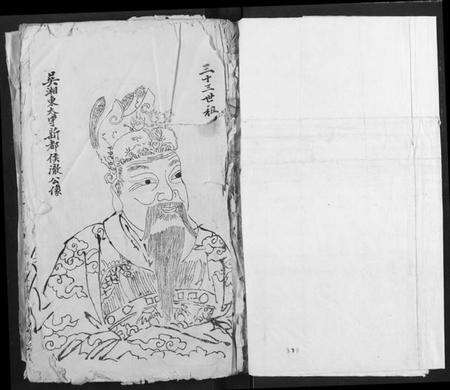 三十三世祖
吳湘東太守新都侯澈公像